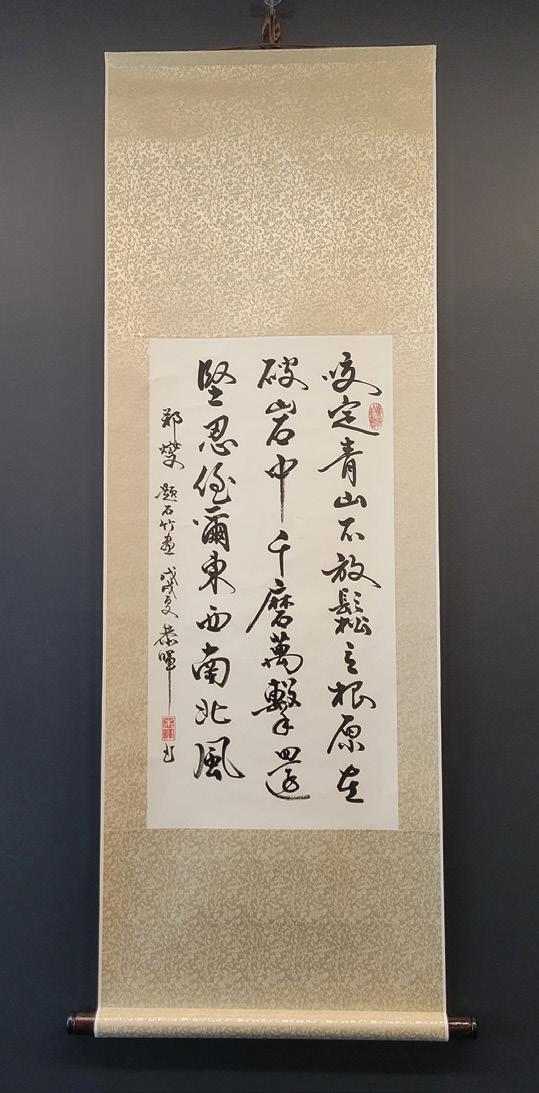 咬定青山不放鬆立根原在
破岩中千磨萬擊還
堅忍任爾東西南北風
郑燮 題石竹畫 戊戌夏 恭暉 书